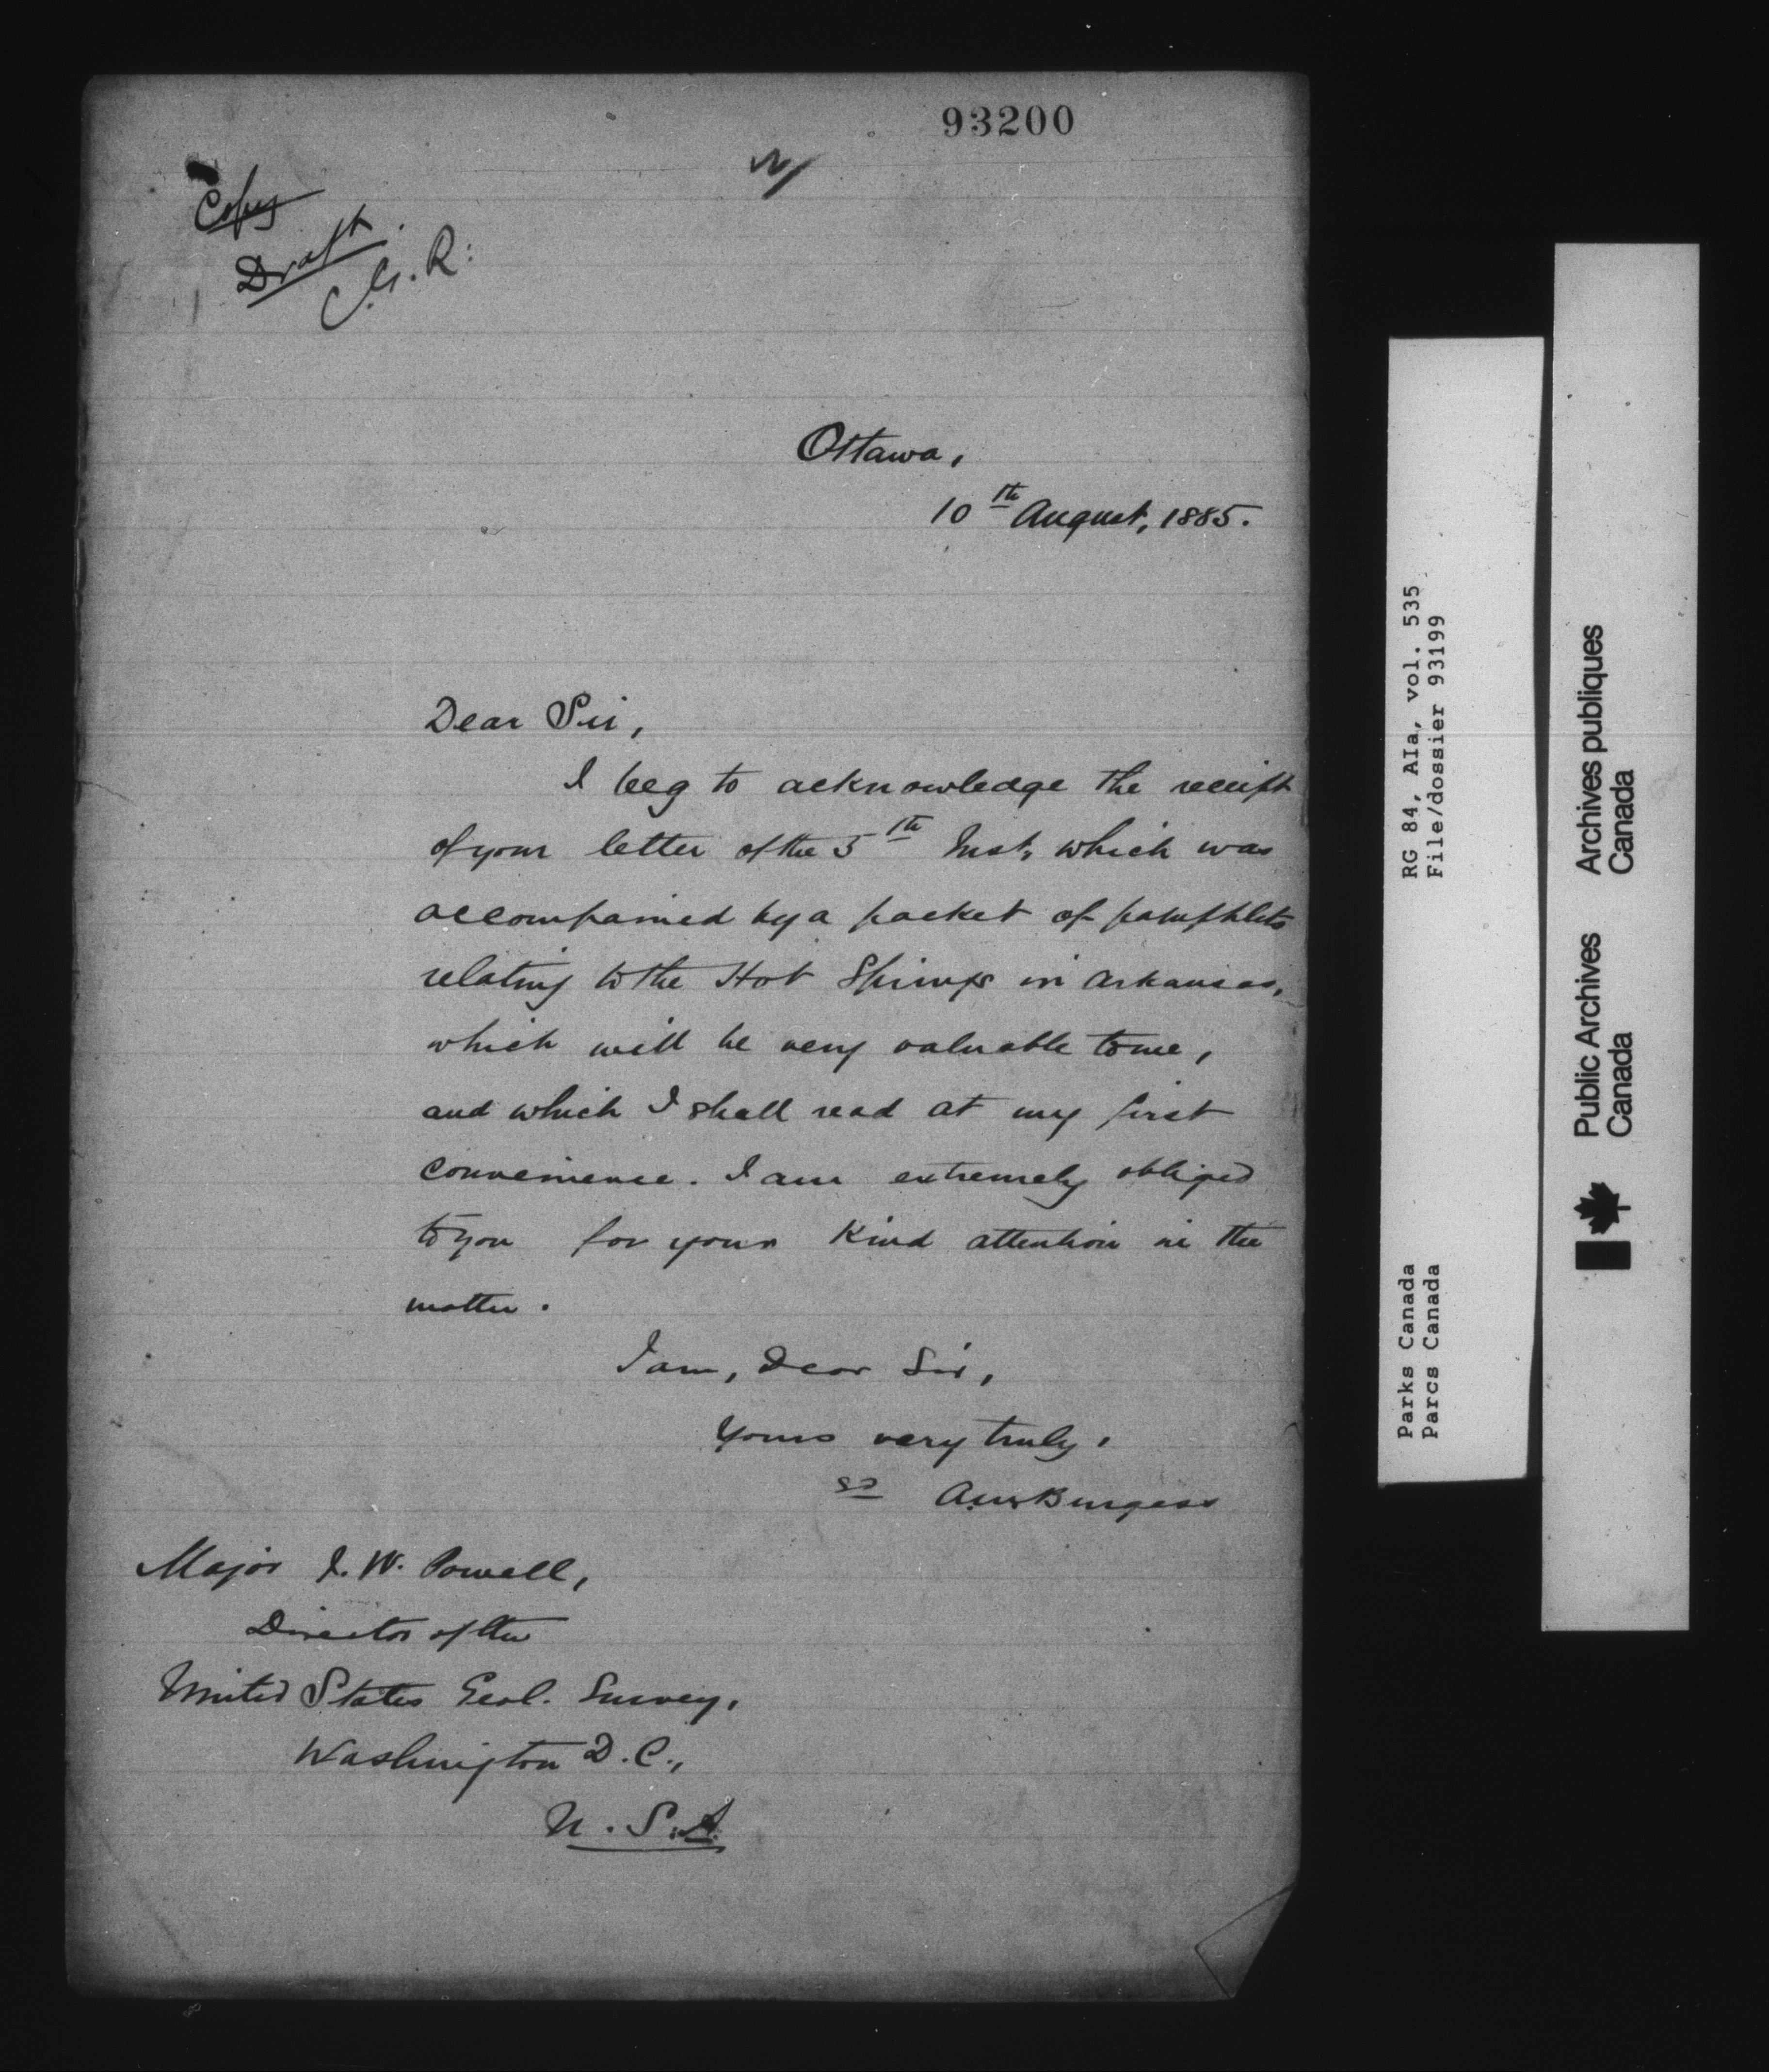 93200
Copy
Draft.
C.G.R:
Ottawa,
10th August, 1885.
Dear Sir,
I beg to acknowledge the receipt
of your letter of the 5th Inst, which was
accompanied by a packet of pamphlets
relating to the Hot Springs in Arkansas,
which will be very valuable to me,
and which I shall read at my first
convenience. I am extremely obliged
to you for your kind attention in the
matter.
I am, Dear Sir,
Yours very truly,
sd A.M. Burgess
Major J. W. Powell,
Director of the
United States Geol. Survey,
Washington D.C.,
U.S.A.
RG 84, AIa, vol. 535
File/dossier 93199
Parks Canada
Parcs Canada
Archives publiques
Canada
Public Archives
Canada